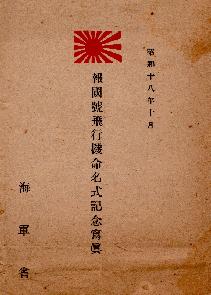 昭和十八年十月
報國號飛行機命名式記念寫眞
海軍省